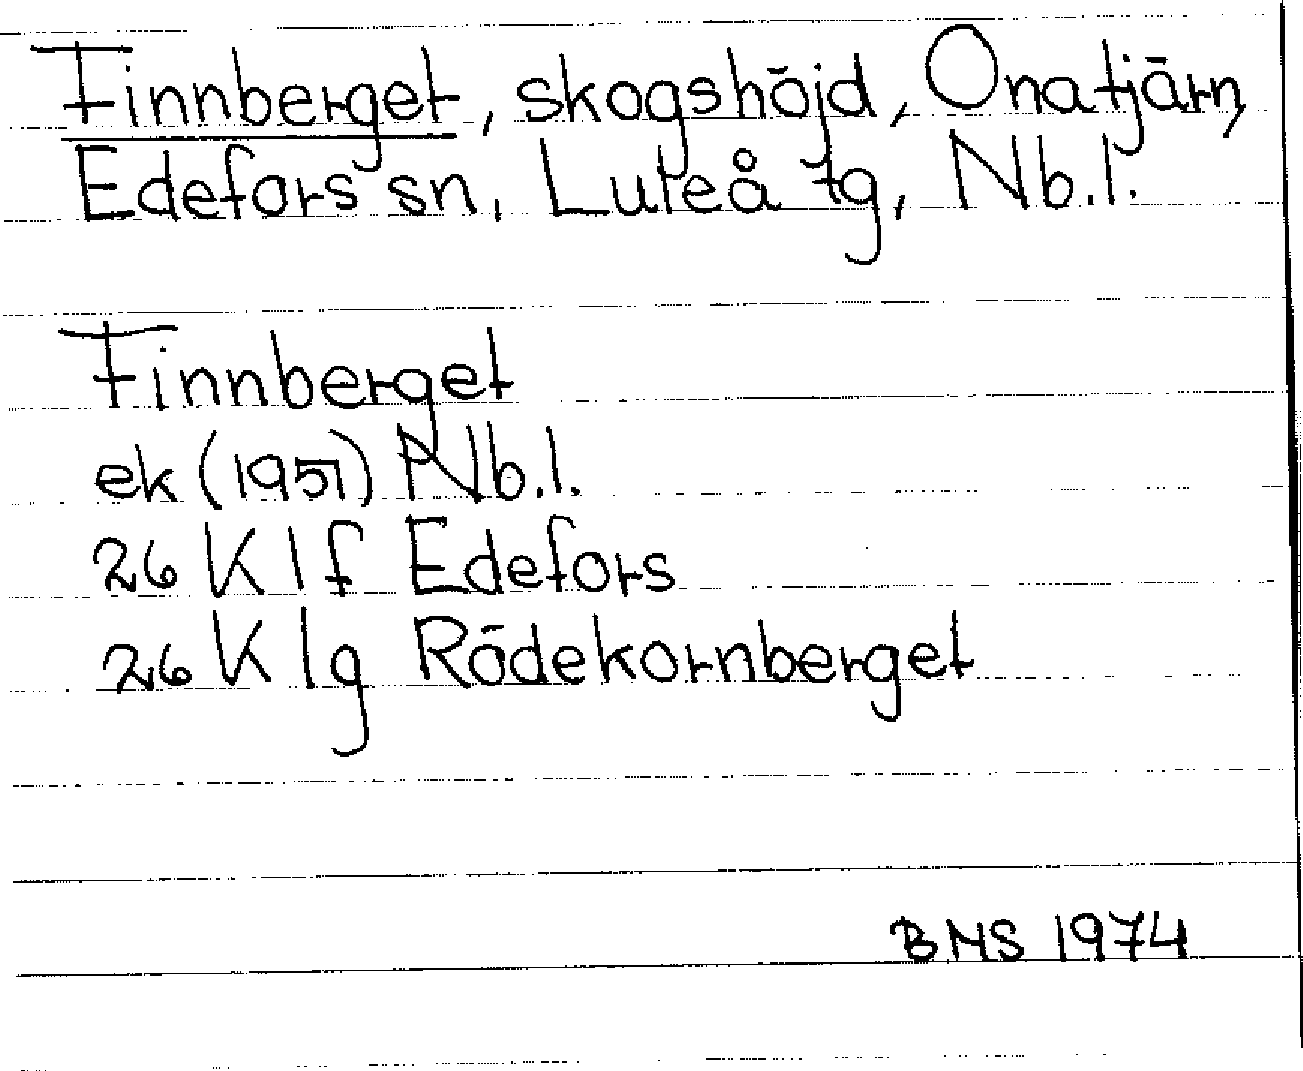 Finnberget, skogshöjd, Onatjärn,
Edefors sn, Luleå tg, Nb.l.
Finnberget
ek (1951) Nb.l.
26 K 1f Edefors
26 K 1g Rödekornberget
BNS 1974